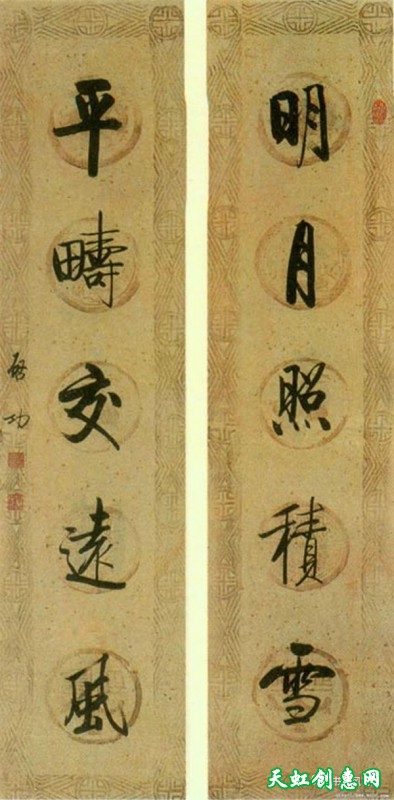 明月照積雪
平疇交遠風
啓功
天虹创惠网